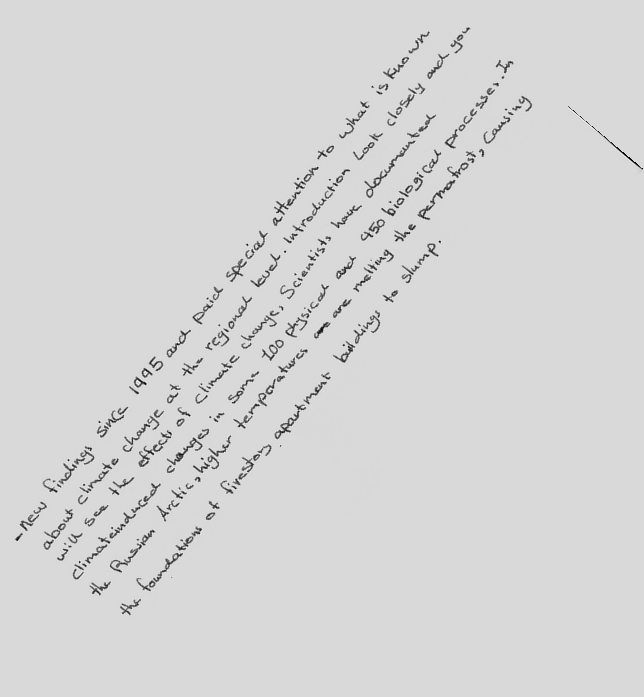 - new findings since 1995 and paid special attention to what is known
about climate change at the regional level. Introduction Look closely and you
will see the effects of climate change, Scientists have documented
climateinduced changes in some 100 physical and 450 biological processes. In
the Russian Arctic, higher temperatures are are melting the permafrost, causing
the foundations of firestory apartment buildings to slump.